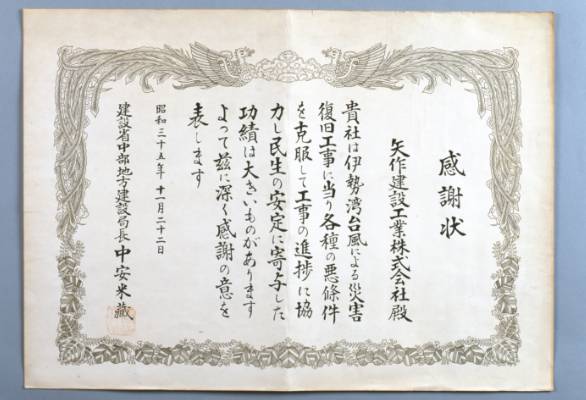 感謝状
矢作建設工業株式会社殿
貴社は伊勢湾台風による災害
復旧工事に当り各種の悪條件
を克服して工事の進捗に協
力し民生の安定に寄与した
功績は大きいものがあります
よって茲に深く感謝の意を
表します
昭和三十五年十一月二十二日
建設省中部地方建設局長 中安米藏